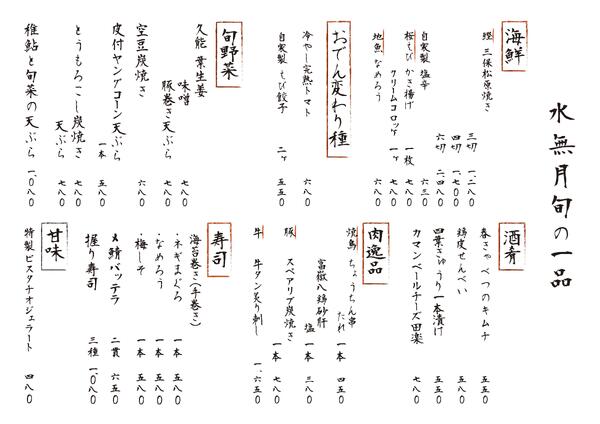 水無月旬の一品
海鮮
鰹 三保松原焼き
三切 一、二八〇
四切 一、七〇〇
六切 二、四八〇
自家製 塩辛 六三〇
桜えび かき揚げ 一枚 七八〇
クリームコロッケ 一ヶ 七八〇
地魚 なめろう 六八〇
おでん変わり種
冷やし完熟トマト 六八〇
自家製 えび餃子 二ヶ 五五〇
旬野菜
久能 葉生姜
味噌 七八〇
豚巻き天ぷら 七八〇
空豆炭焼き 六八〇
皮付ヤングコーン天ぷら 一本 五八〇
とうもろこし炭焼き 七八〇
天ぷら 七八〇
稚鮎と旬菜の天ぷら 一、〇八〇
酒肴
春きゃべつのキムチ 五五〇
鶏皮せんべい 五八〇
四葉きゅうり一本漬け 五八〇
カマンベールチーズ田楽 七八〇
肉逸品
焼鳥 ちょうちん串 たれ 一本 四五〇
富嶽八鶏砂肝 塩 一本 三八〇
豚 スペアリブ炭焼き 一本 七八〇
牛 牛タン炙り刺し 一、六五〇
寿司
海苔巻き(手巻き)
・ネギまぐろ 一本 五八〇
・なめろう 一本 五八〇
・梅しそ 一本 五八〇
〆鯖バッテラ 二貫 六五〇
握り寿司 三種 一、〇八〇
甘味
特製ピスタチオジェラート 四八〇